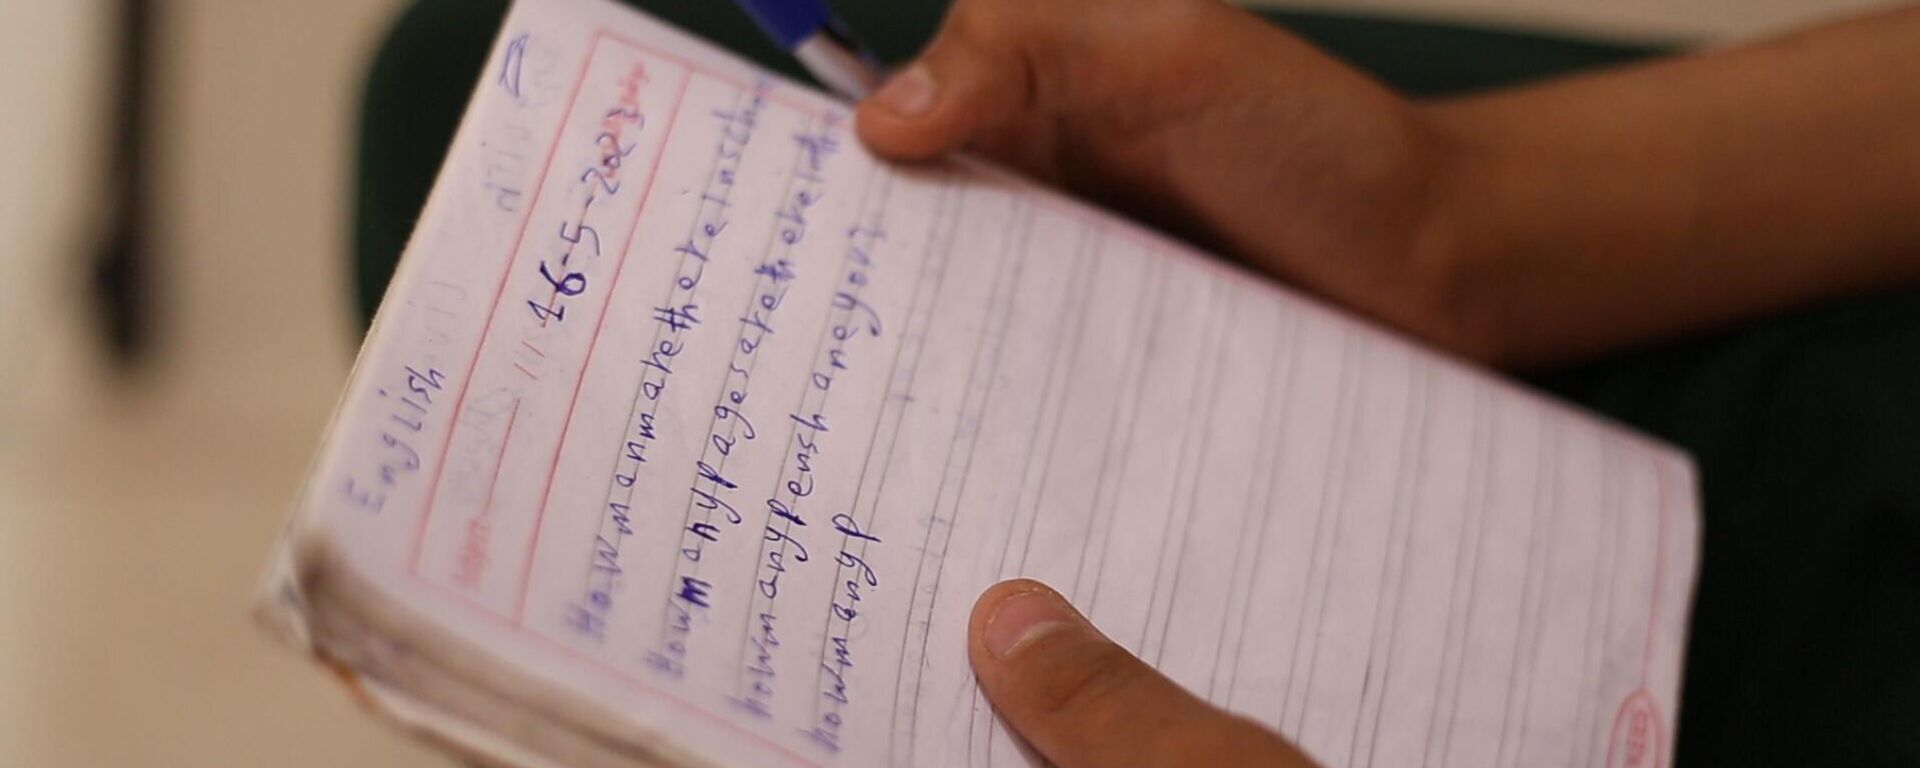 English
16-5-2023
How manmarethereinsch
How manypagesaretherein
howmanypensh areyou?
howmanyp